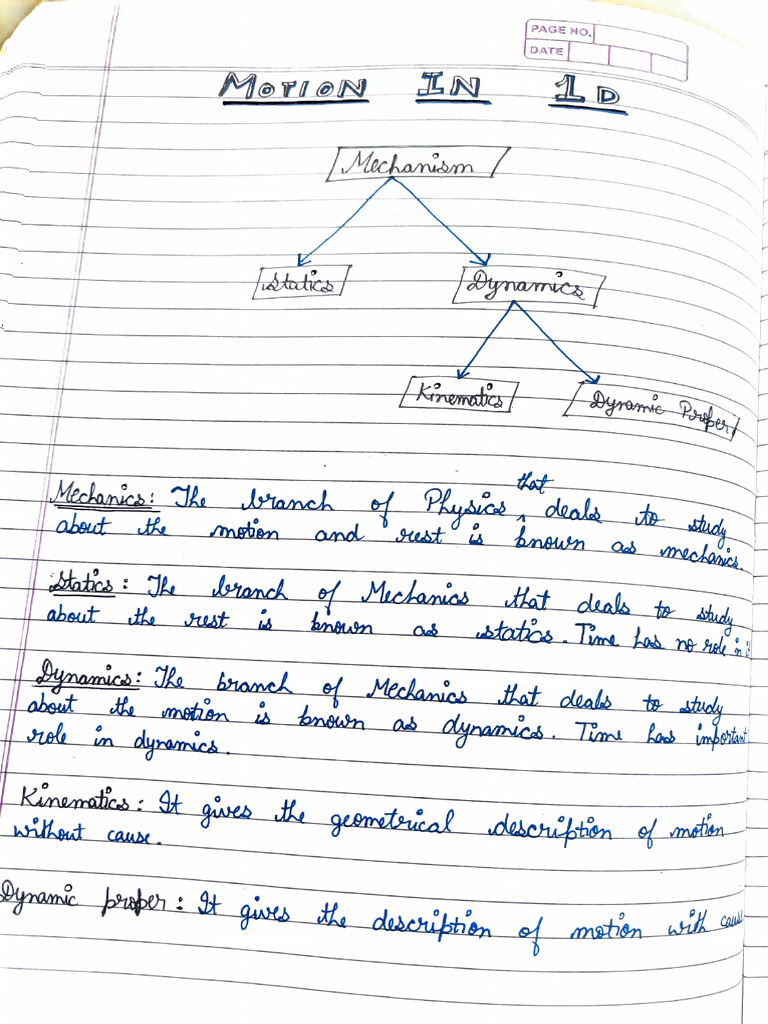 PAGE NO.
DATE
MOTION IN 1D
Mechanism
Statics
Dynamics
Kinematics
Dynamic Proper
that
Mechanics: The branch of Physics ‸ deals to study
about the motion and rest is known as mechanics.
Statics: The branch of Mechanics that deals to study
about the rest is known as statics. Time has no role in it
Dynamics: The branch of Mechanics that deals to study
about the motion is known as dynamics. Time has important
role in dynamics.
Kinematics: It gives the geometrical description of motion
without cause.
Dynamic proper: It gives the description of motion with cause